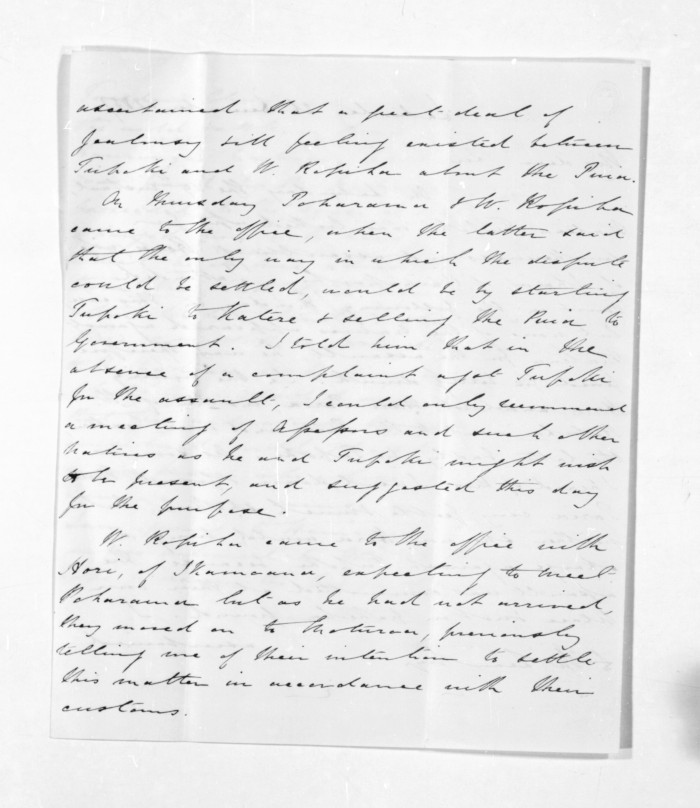 ascertained that a great deal of
Jealousy & ill feeling existed between
Tupoki and W. Ropiha about the Puia.
On Thursday Poharama & W. Ropiha
came to the office, when the latter said
that the only way in which the dispute
could be settled, would be by starting
Tupoki to Katere & selling the Puia to
Government. I told him that in the
absence of a complaint agst Tupoki
for the assault, I could only recommend
a meeting of Assessors and such other
natives as he and Tupoki might wish
to be present, and suggested this day
for the purpose.
W. Ropiha came to the office with
Hori, of expecting to meet
Poharama but as he had not arrived,
they moved on to Moturoa, previously
telling me of their intention to settle
this matter in accordance with their
customs.